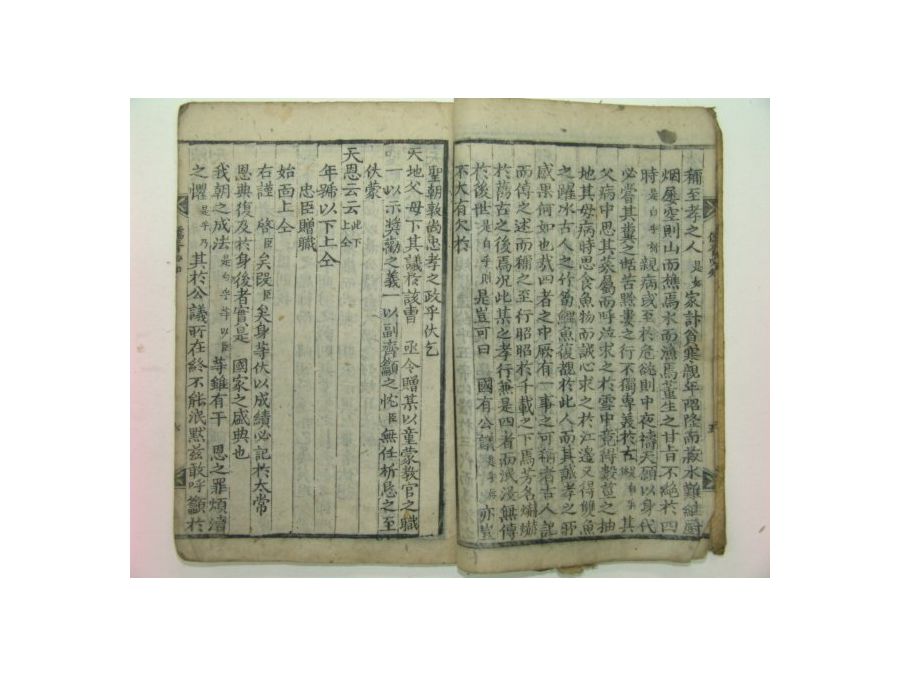 稱至孝之人是如家計貧寒親年隆南菽水難繼厨
烟屢空則山而樵焉水而漁焉董生之甘旨不絶於四
時是白乎旀親病或至於危䋲則中夜禱天願以身代
必嘗其糞之恬苦黔婁之行不獨專美於古其
父病中思其菉屬而呼泣求之於雪中竟得數莖之抽
地其母病時思食魚物而誠心求之於江邊又得雙魚
之躍氷古人之竹筍鯉魚復覩於此人而其誠孝之所
感果何如也哉四者之中厥有一事之可稱者古人記
而傳之述而稱之至行昭昭於千載之下焉芳名爀爀
於萬古之後焉况此某之孝行兼是四者而泯沒無傳
於後世是白乎則是豈可曰 國有公議 亦豈
不大有欠於
聖朝敦尚忠孝之政乎伏乞
天地父母下其議於該曺 亟令贈某以童蒙教官之職
一以示奬勸之義一以副齊籲之忱臣無任祈恳之至
伏蒙
天恩云云此下上仝
年號以下上仝
忠臣贈職
始面上仝
右謹 啓臣矣段臣矣身等伏以成績必記於太常
恩典復及於身後者實是 國家之盛典也
我朝之成法是白乎等以臣等雖有干 恩之罪煩瀆
之懼是乎乃其於公議所在終不能泯默玆敢呼籲於